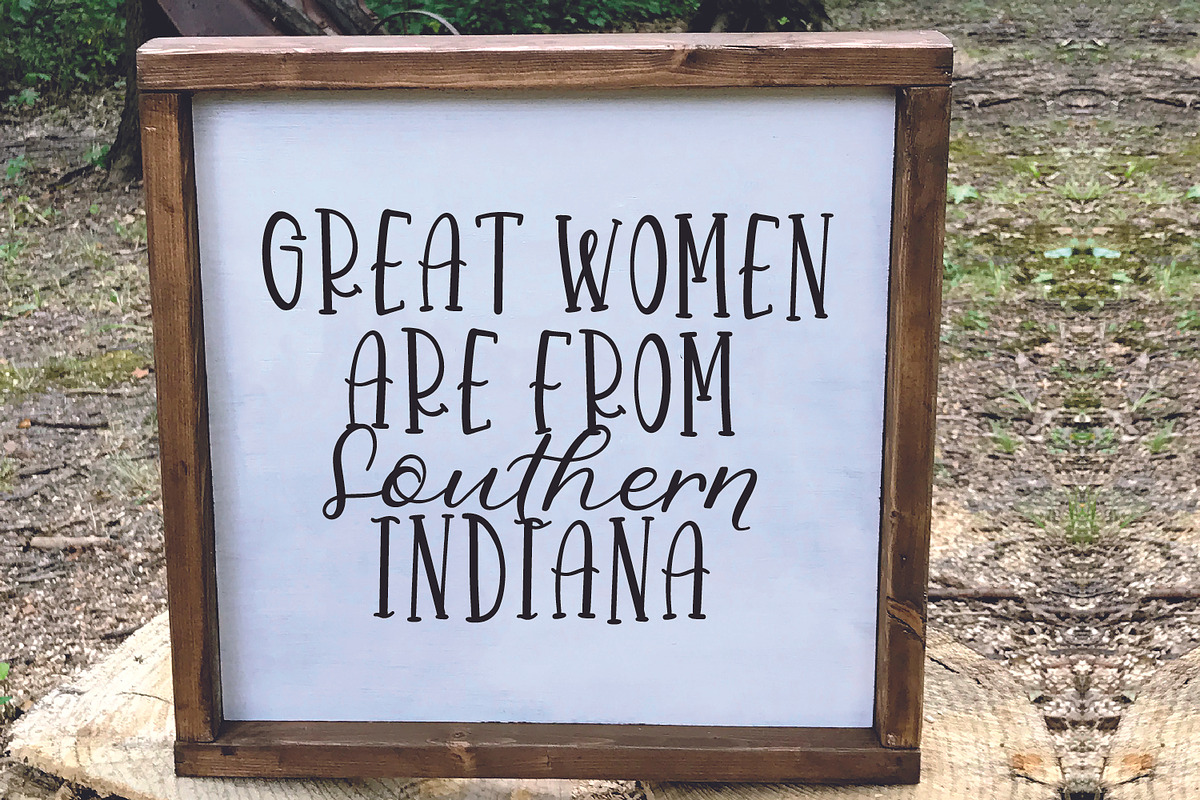 GREAT WOMEN
ARE FROM
Southern
INDIANA